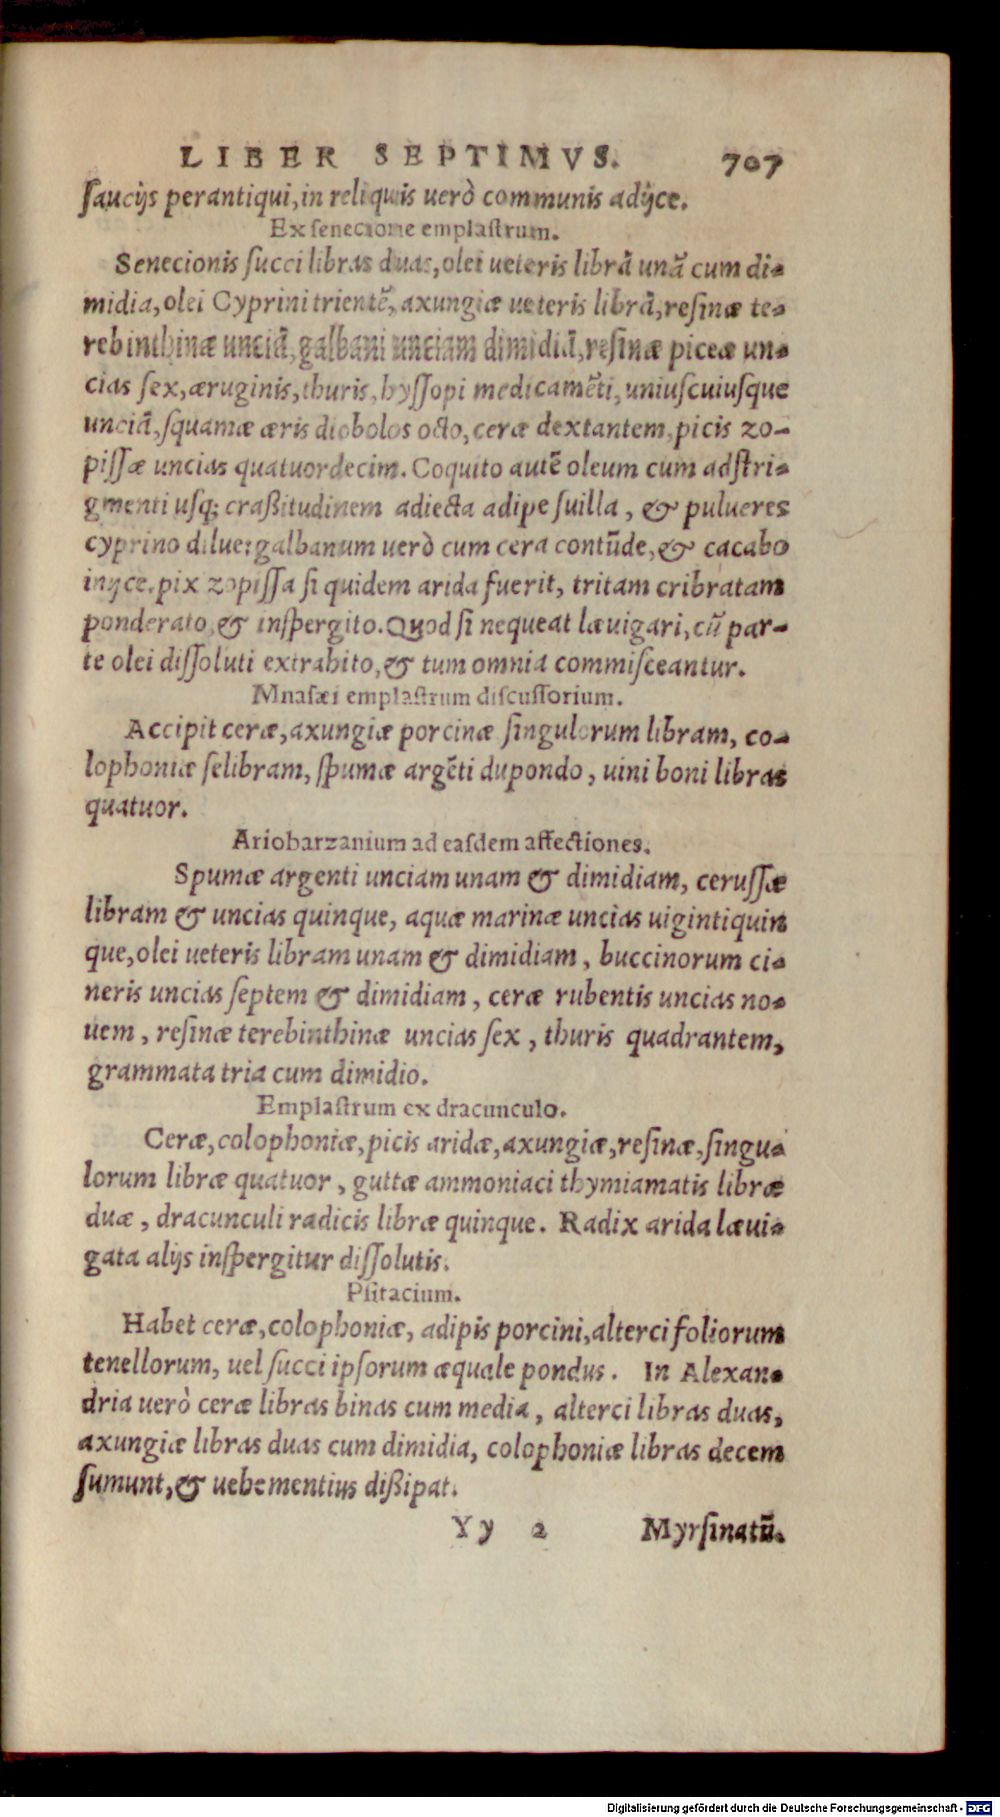 LIBER SEPTIMVS. 707
saucijs perantiqui, in reliquis uerò communis adijce.
Ex senecione emplastrum.
Senecionis succi libras duas, olei ueteris librā unā cum di-
midia, olei Cyprini trientē, axungiæ ueteris librā, resinæ te-
rebinthinæ unciā, galbani unciam dimidiā, resinæ piceæ un-
cias sex, æruginis, thuris, hyssopi medicamēti, uniuscuiusque
unciā, squamæ æris diobolos octo, ceræ dextantem, picis zo-
pissæ uncias quatuordecim. Coquito autē oleum cum adstri-
gmenti usq; craßitudinem adiecta adipe suilla, & pulueres
cyprino dilue: galbanum uerò cum cera contūde, & cacabo
inijce. pix zopissa si quidem arida fuerit, tritam cribratam
ponderato, & inspergito. Quod si nequeat læuigari, cū par-
te olei dissoluti extrahito, & tum omnia commisceantur.
Mnasæi emplastrum discussorium.
Accipit ceræ, axungiæ porcinæ singulorum libram, co-
lophoniæ selibram, spumæ argēti dupondo, uini boni libras
quatuor.
Ariobarzanium ad easdem affectiones.
Spumæ argenti unciam unam & dimidiam, cerussæ
libram & uncias quinque, aquæ marinæ uncias uigintiquin
que, olei ueteris libram unam & dimidiam, buccinorum ci-
neris uncias septem & dimidiam, ceræ rubentis uncias no-
uem, resinæ terebinthinæ uncias sex, thuris quadrantem,
grammata tria cum dimidio.
Emplastrum ex dracunculo.
Ceræ, colophoniæ, picis aridæ, axungiæ, resinæ, singu-
lorum libræ quatuor, guttæ ammoniaci thymiamatis libræ
duæ, dracunculi radicis libræ quinque. Radix arida læui-
gata alijs inspergitur dissolutis.
Psitacium.
Habet ceræ, colophoniæ, adipis porcini, alterci foliorum
tenellorum, uel succi ipsorum æquale pondus. In Alexan-
dria uerò ceræ libras binas cum media, alterci libras duas,
axungiæ libras duas cum dimidia, colophoniæ libras decem
sumunt, & uehementius dißipat.
Yy 2 Myrsinatū.
Digitalisierung gefördert durch die Deutsche Forschungsgemeinschaft - DFG